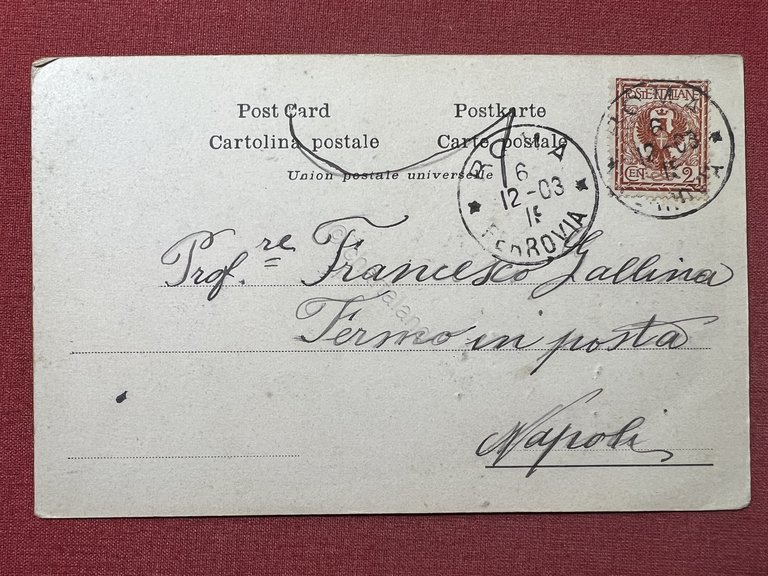 Post Card Postkarte
Cartolina postale Carte postale
Union postale universelle
POSTE ITALIANE
CEN. 2
ROMA
6
12-03
FERROVIA
ROMA
6
12-03
Prof.re Francesco Gallina
Fermo in posta
Napoli